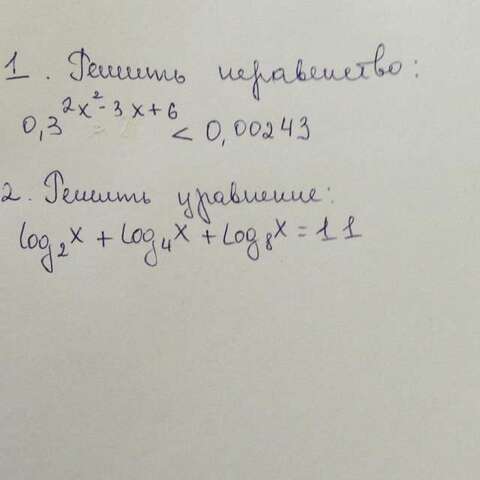 1. Решить неравенство:
0,3^{2x²-3x+6} < 0,00243
2. Решить уравнение:
log₂x + log₄x + log₈x = 11